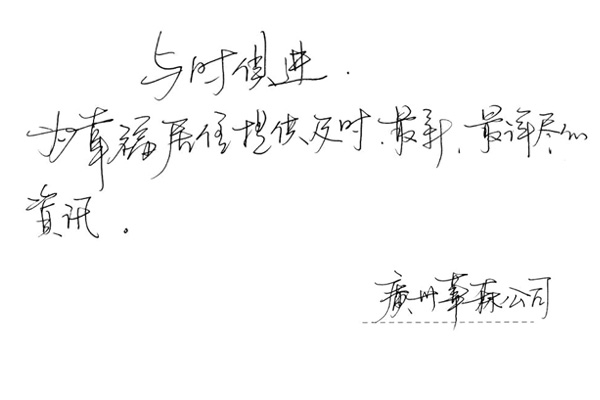 与时俱进.
为幸福居住提供及时.最新.最详尽的
资讯。
廣州華森公司